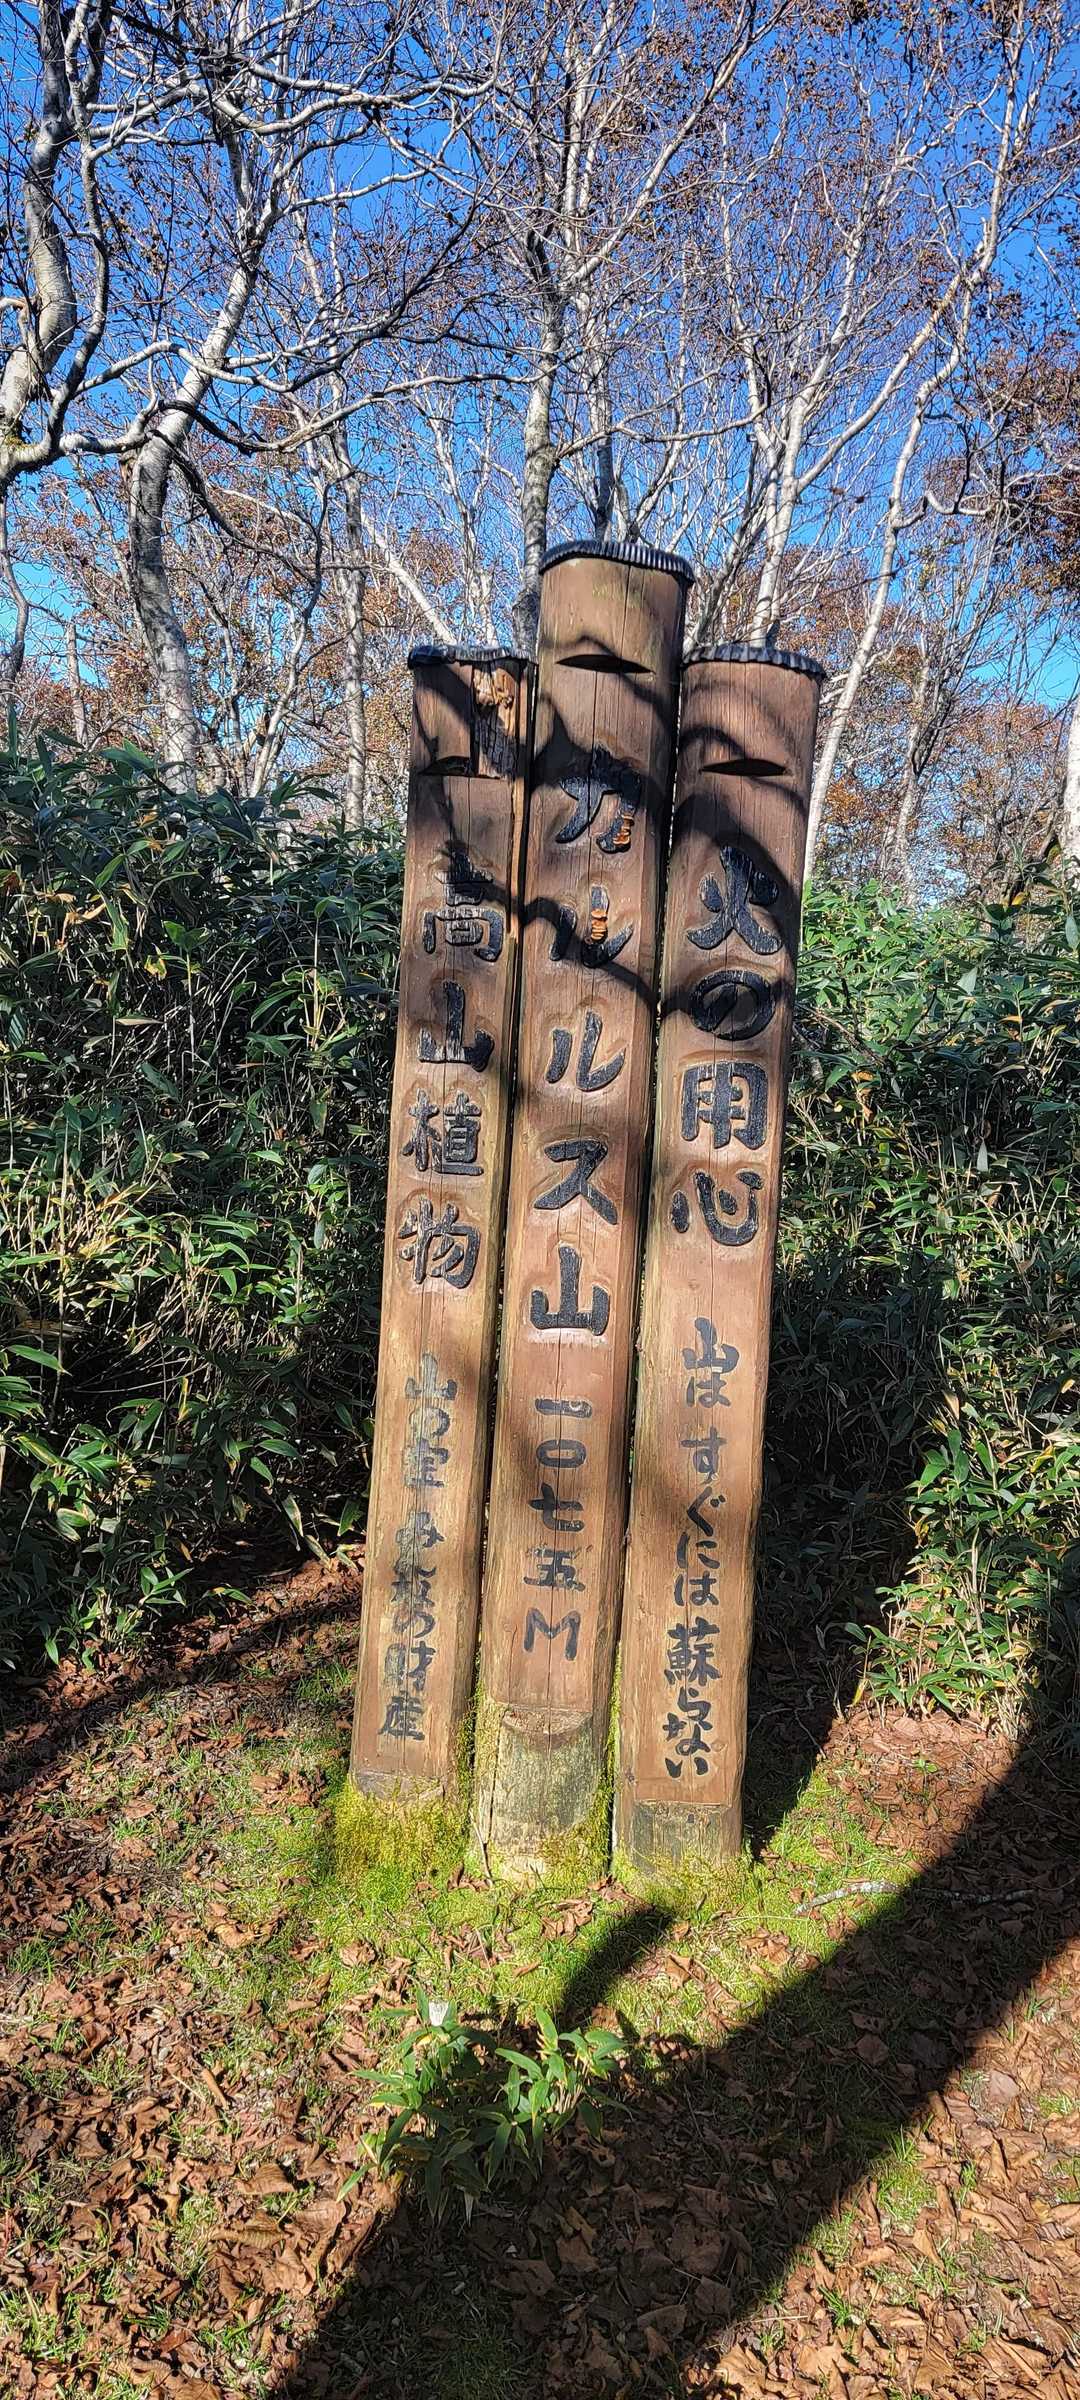 火の用心 山は すぐには蘇らない
カルルス山 一〇七五M
高山植物 山の宝 みんなの財産